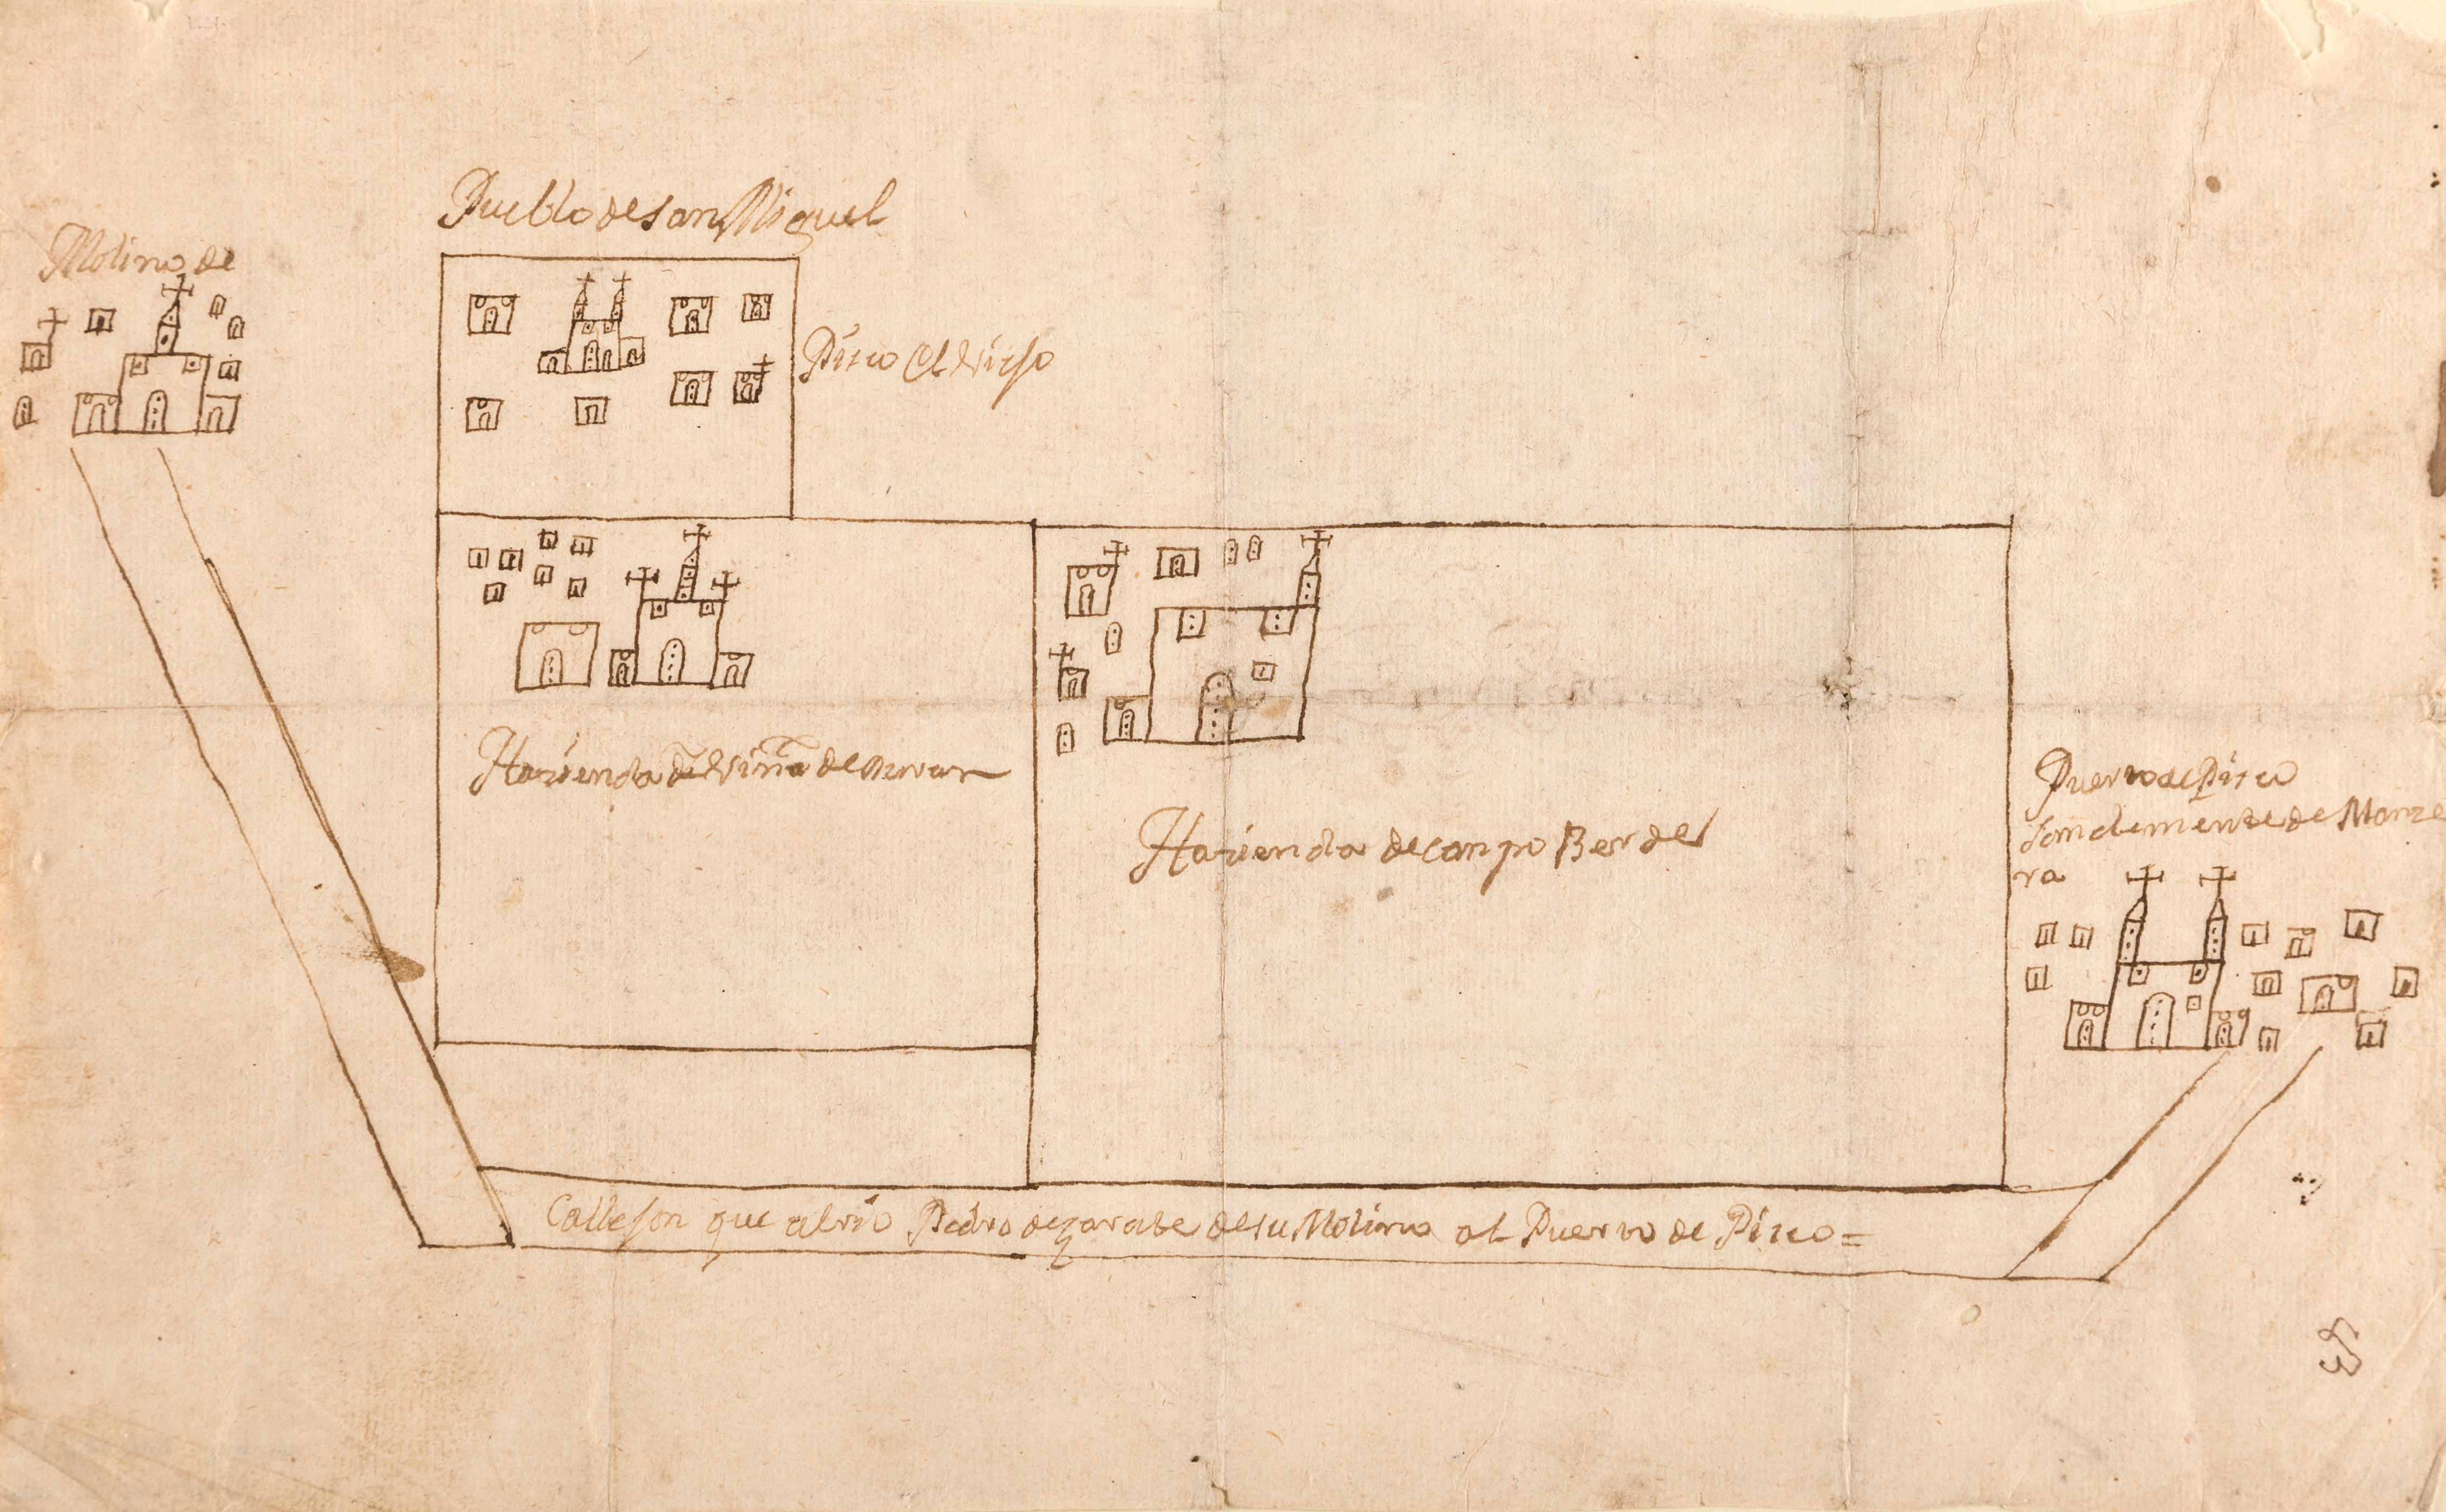 Pueblo de san Miguel
Molino de
Pisco el viejo
Hazienda de viña de
Hazienda de campo Berde
Puerto de Pisco
san clemente de Manze
ra
Callejon que abrio Pedro de zarate de su Molino al Puerto de Pisco =